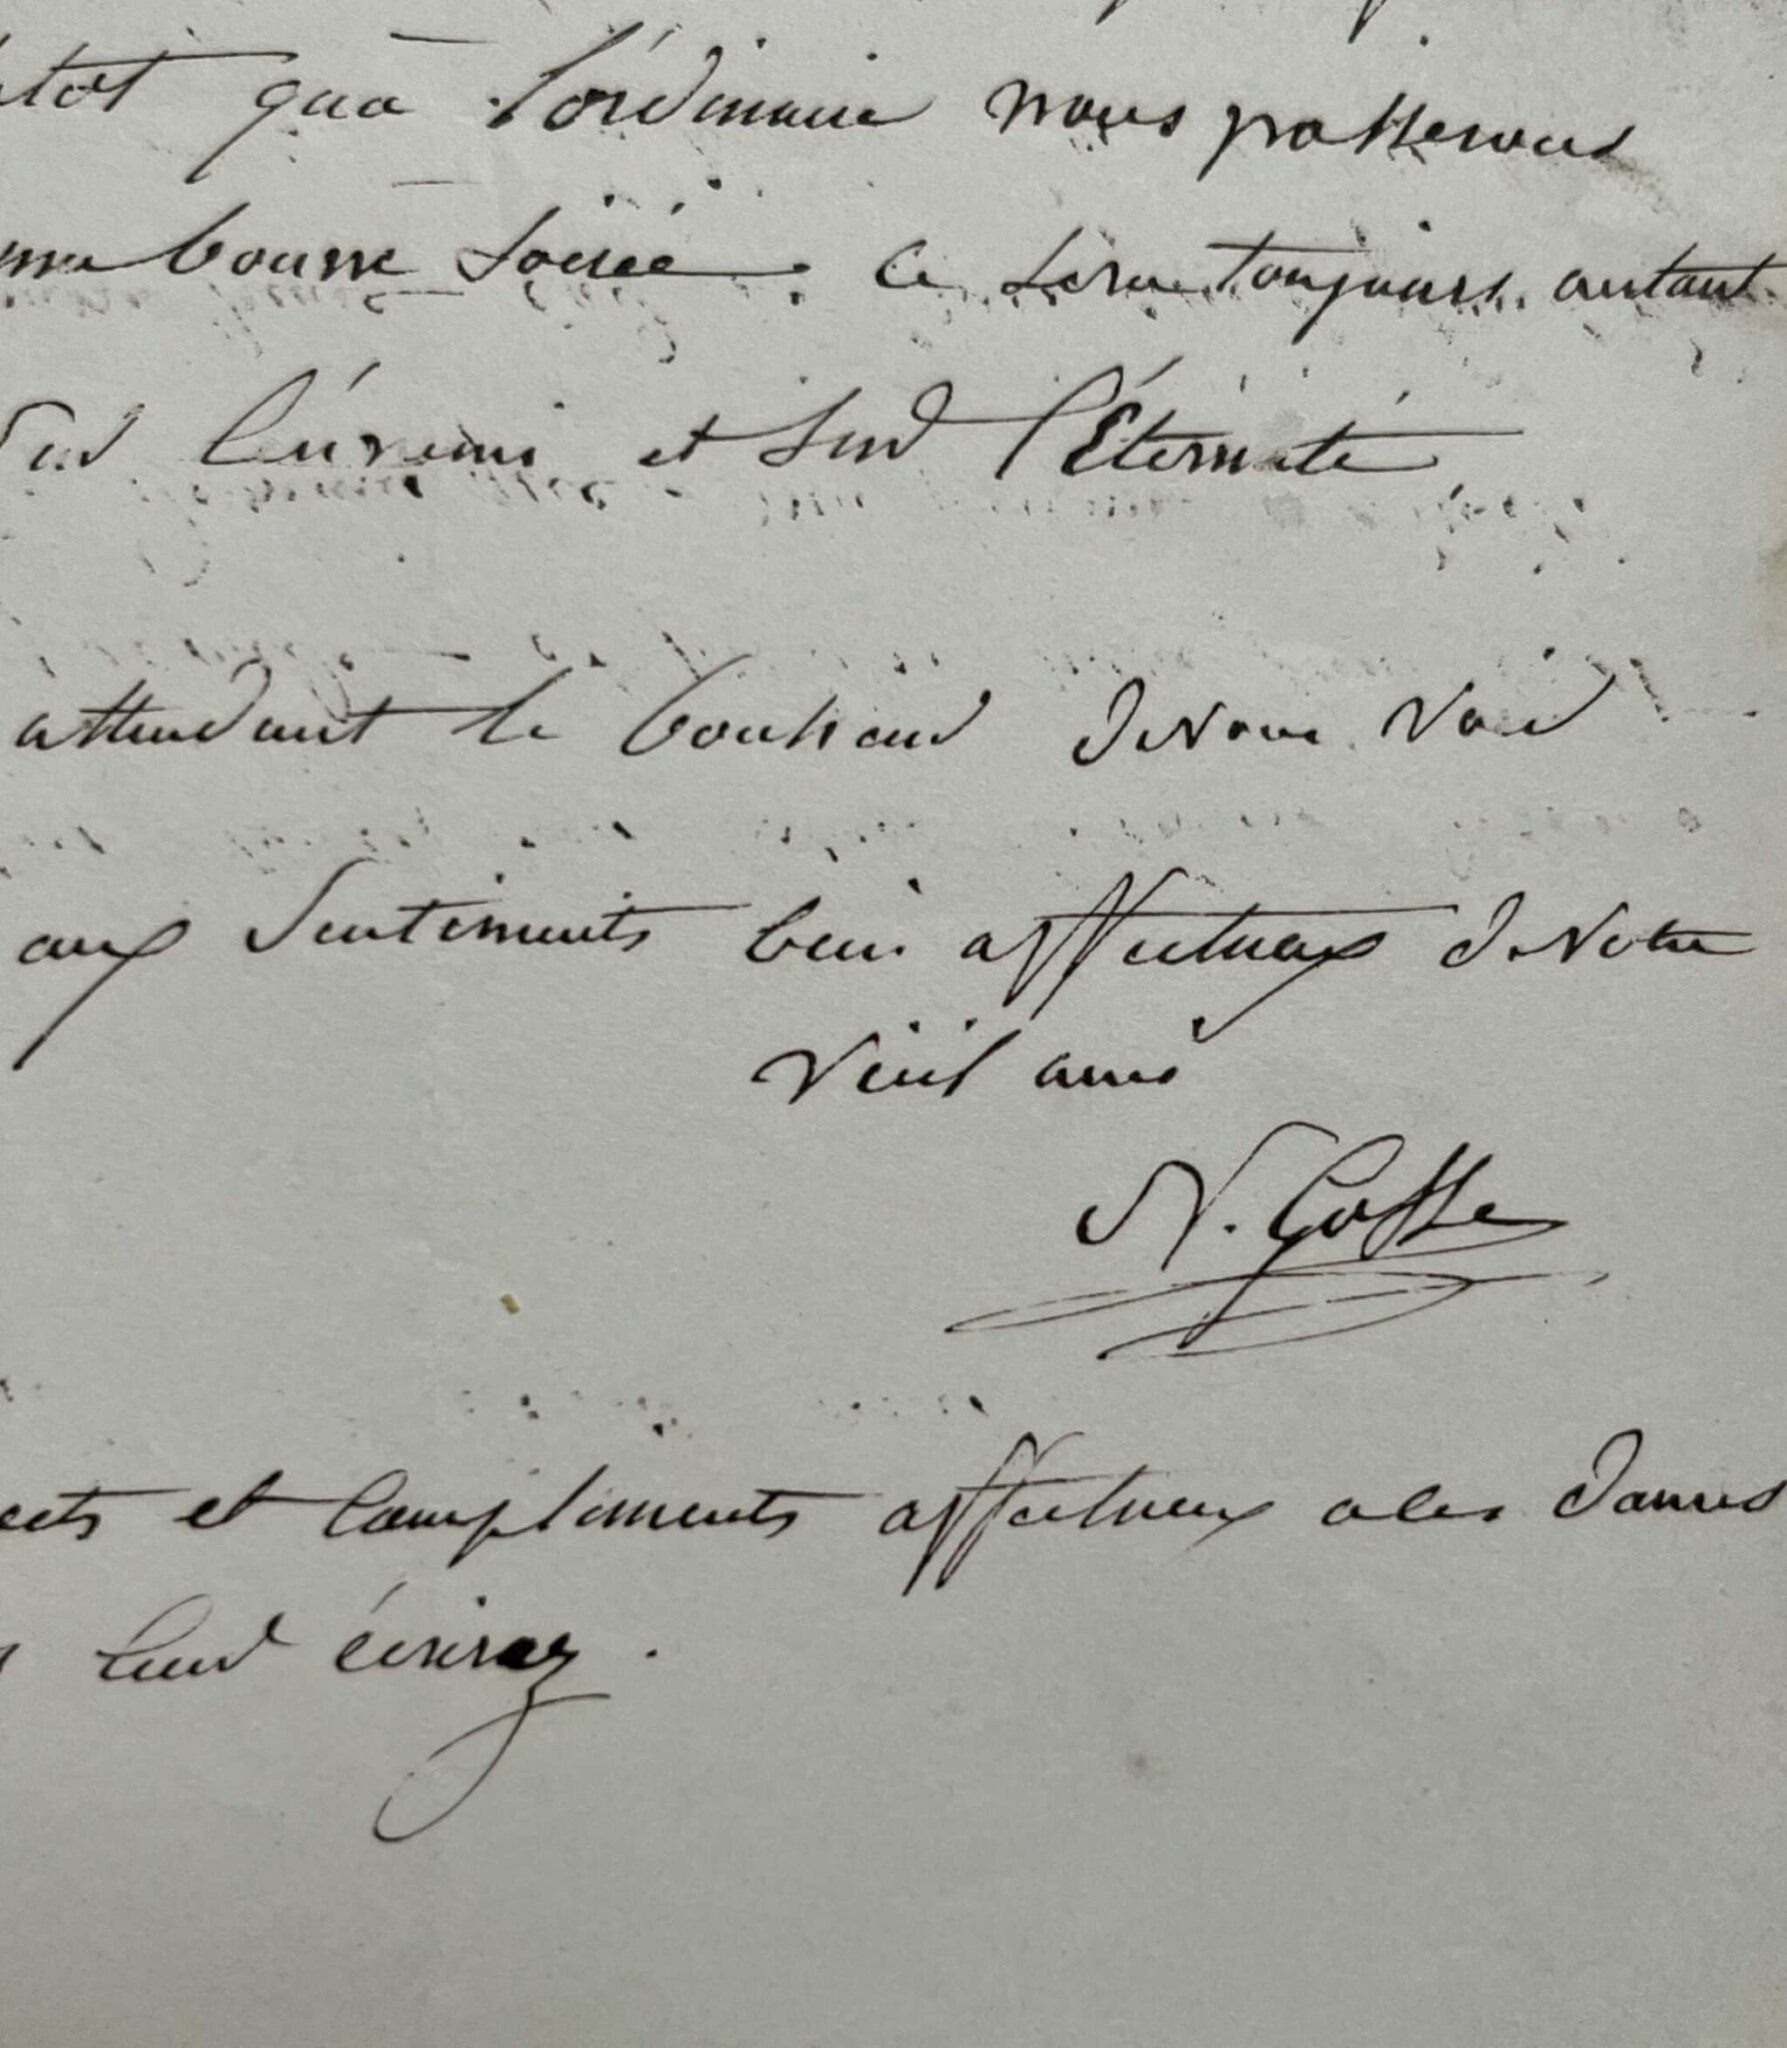 tôt qu'à l'ordinaire nous passerons
une bonne soirée. Ce sera toujours autant
sur l'ennui et sur l'Éternité
attendant le bonheur de vous voir
aux sentiments bien affectueux de votre
vieil ami
N. Gosse
ects et compliments affectueux a les dames
leur écrirez.